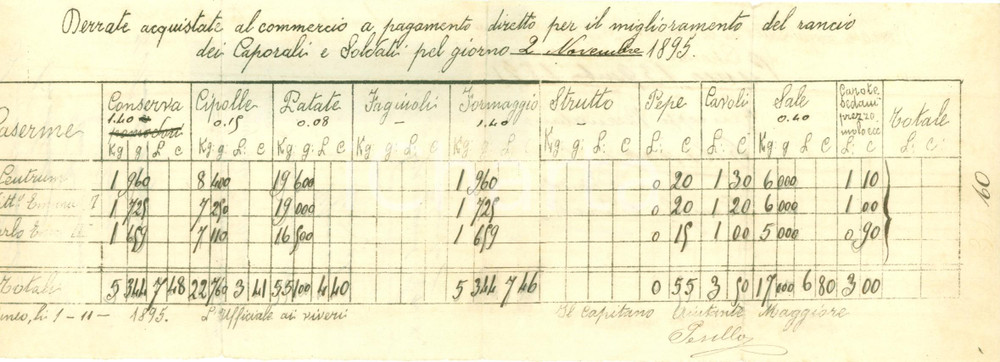 Derrate acquistate al commercio a pagamento diretto per il miglioramento del rancio
dei Caporali e Soldati pel giorno 2 Novembre 1895.
Caserme Conserva Cipolle Patate Fagiuoli Formaggio Strutto Pepe Cavoli Sale Carote Sedani prezzemolo ecc Totale
1.40 0.15 0.08 – 1.40 – 0.40
pomodori
Kg g L c Kg g L c Kg g L c Kg g L c Kg g L c Kg g L c L c L c Kg g L c L c L c
Centrum 1 960 8 400 19 600 1 960 0 20 1 30 6 000 1 10
1 725 7 250 19 000 1 725 0 20 1 20 6 000 1 00
1 659 7 110 16 500 1 659 0 15 1 00 5 000 0 90
Totali 5 344 7 48 22 760 3 41 55 100 4 40 5 344 7 46 0 55 3 50 17 000 6 80 3 00
uneo, li 1-11- 1895. L'Ufficiale ai viveri Il Capitano Aiutante Maggiore
60